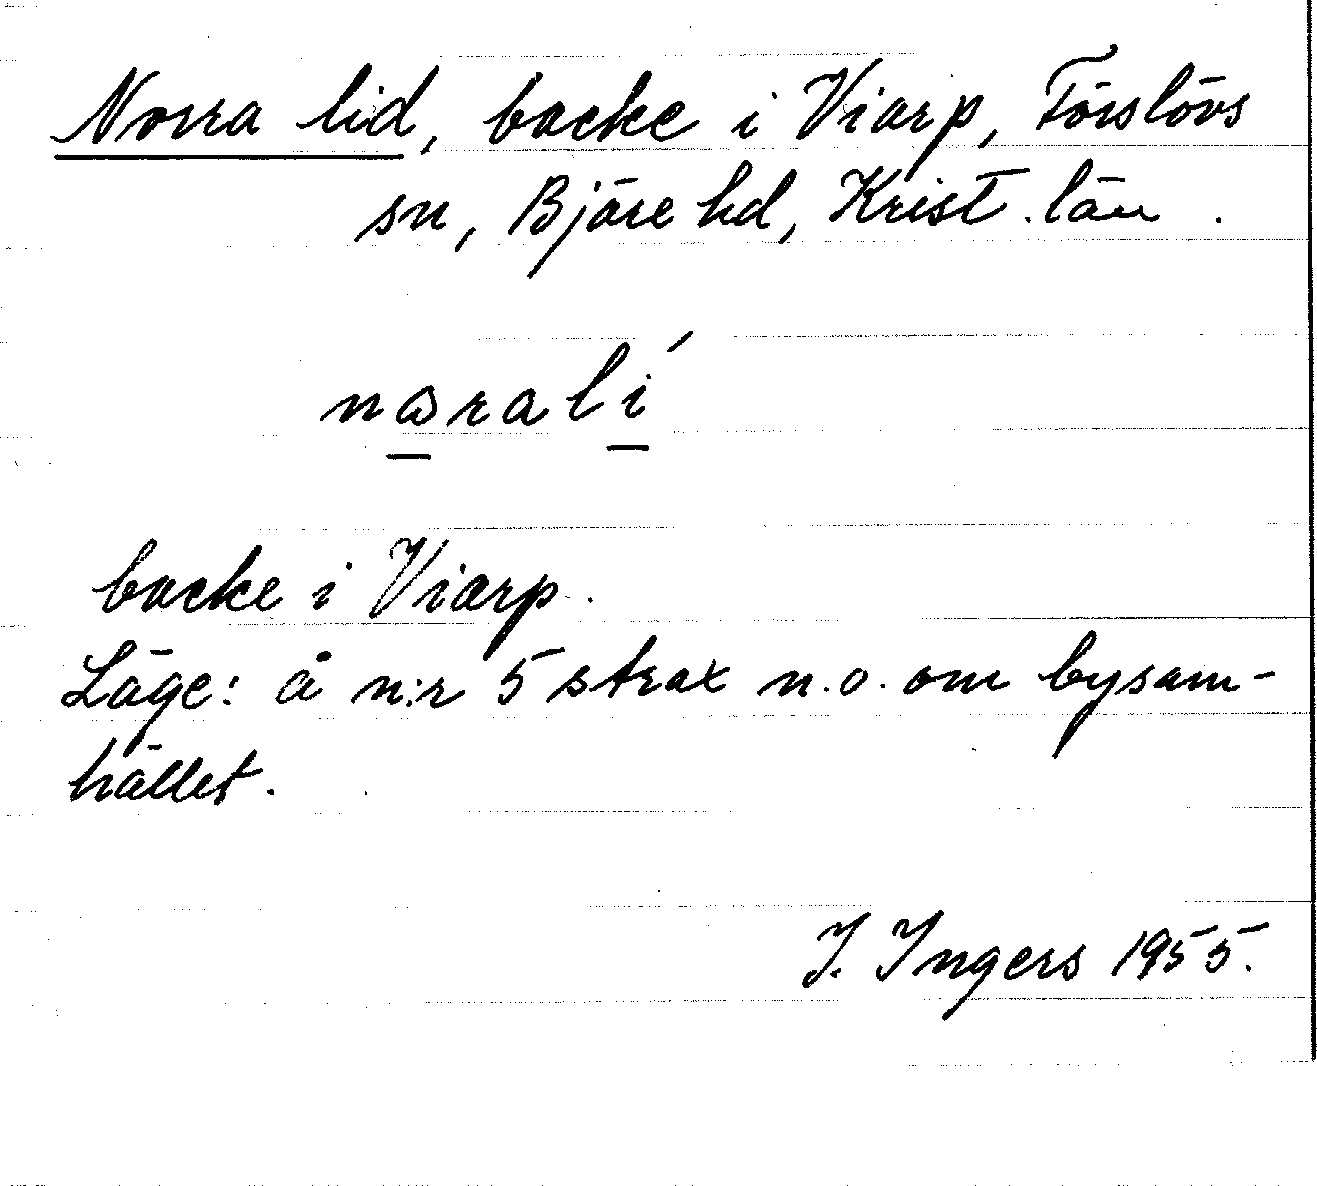 Norra lid, backe i Viarp, Förslövs
sn, Bjäre hd, Krist. län.
backe i Viarp.
Läge: å n:r 5 strax n.o. om bysam-
hället.
I. Ingers 1955.